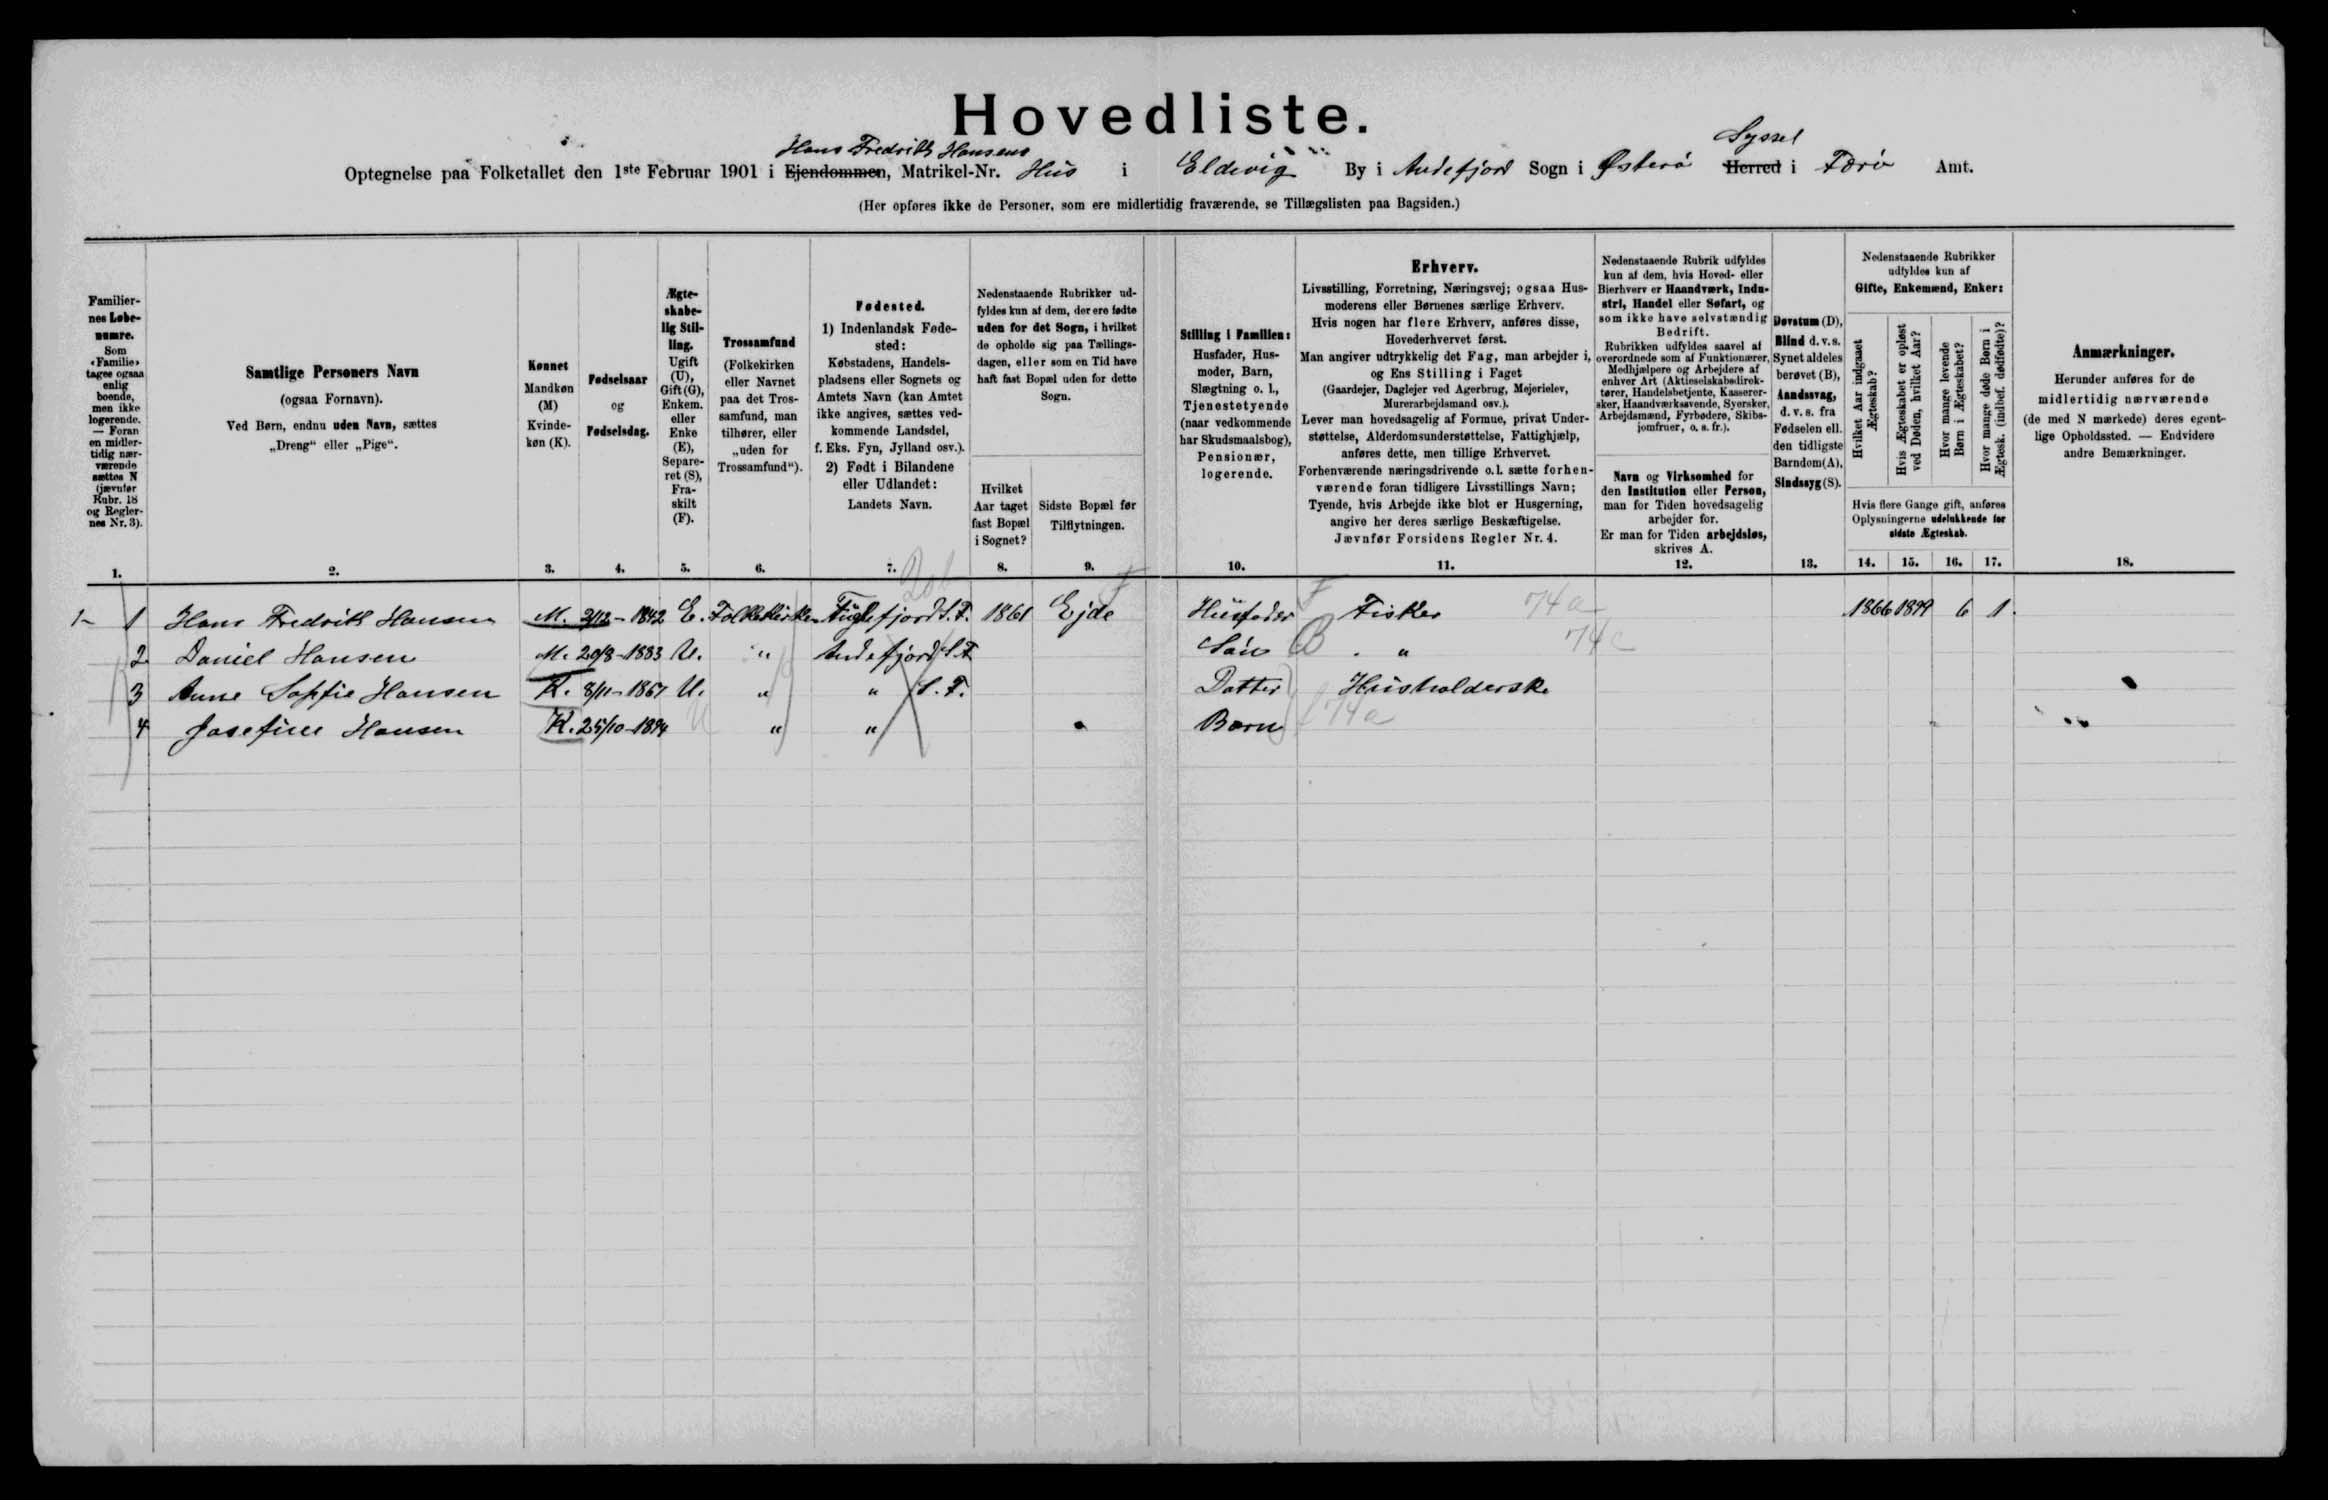 Hovedliste.
Hans Fredrik Hansens
Syssel
Optegnelse paa Folketallet den 1ste Februar 1901 i Ejendommen, Matrikel-Nr. Hus i Eldevig By i Andefjord Sogn i Østerö Herred i Færö Amt.
(Her opføres ikke de Personer, som ere midlertidig fraværende, se Tillægslisten paa Bagsiden.)
Familiernes Løbenumre.
Som «Familie» tages ogsaa enlig boende, men ikke logerende. — Foran en midlertidig nærværende sættes N (jævnfør Rubr. 18 og Reglernes Nr. 3).
Samtlige Personers Navn
(ogsaa Fornavn).
Ved Børn, endnu uden Navn, sættes
„Dreng“ eller „Pige“.
Kønnet
Mandkøn
(M)
Kvinde-
køn (K).
Fødselsaar
og
Fødselsdag.
Ægte-
skabe-
lig Stil-
ling.
Ugift
(U),
Gift (G),
Enkem.
eller
Enke
(E),
Separe-
ret (S),
Fra-
skilt
(F).
Trossamfund
(Folkekirken
eller Navnet
paa det Tros-
samfund, man
tilhører, eller
„uden for
Trossamfund“).
Fødested.
1) Indenlandsk Føde-
sted:
Købstadens, Handels-
pladsens eller Sognets og
Amtets Navn (kan Amtet
ikke angives, sættes ved-
kommende Landsdel,
f. Eks. Fyn, Jylland osv.).
2) Født i Bilandene
eller Udlandet:
Landets Navn.
Nedenstaaende Rubrikker ud-
fyldes kun af dem, der ere fødte
uden for det Sogn, i hvilket
de opholde sig paa Tællings-
dagen, eller som en Tid have
haft fast Bopæl uden for dette
Sogn.
Hvilket
Aar taget
fast Bopæl
i Sognet?
Sidste Bopæl før
Tilflytningen.
Stilling i Familien:
Husfader, Hus-
moder, Barn,
Slægtning o. l.,
Tjenestetyende
(naar vedkommende
har Skudsmaalsbog),
Pensionær,
logerende.
Erhverv.
Livsstilling, Forretning, Næringsvej; ogsaa Hus-
moderens eller Børnenes særlige Erhverv.
Hvis nogen har flere Erhverv, anføres disse,
Hovederhvervet først.
Man angiver udtrykkelig det Fag, man arbejder i,
og Ens Stilling i Faget
(Gaardejer, Daglejer ved Agerbrug, Mejerielev,
Murerarbejdsmand osv.).
Lever man hovedsagelig af Formue, privat Under-
støttelse, Alderdomsunderstøttelse, Fattighjælp,
anføres dette, men tillige Erhvervet.
Forhenværende næringsdrivende o.l. sætte forhen-
værende foran tidligere Livsstillings Navn;
Tyende, hvis Arbejde ikke blot er Husgerning,
angive her deres særlige Beskæftigelse.
Jævnfør Forsidens Regler Nr. 4.
Nedenstaaende Rubrik udfyldes
kun af dem, hvis Hoved- eller
Bierhverv er Haandværk, Indu-
stri, Handel eller Søfart, og
som ikke have selvstændig
Bedrift.
Rubrikken udfyldes saavel af
overordnede som af Funktionærer,
Medhjælpere og Arbejdere af
enhver Art (Aktieselskabsdirek-
tører, Handelsbetjente, Kasserer-
sker, Haandværkssvende, Syersker,
Arbejdsmænd, Fyrbødere, Skibs-
jomfruer, o. s. fr.).
Navn og Virksomhed for
den Institution eller Person,
man for Tiden hovedsagelig
arbejder for.
Er man for Tiden arbejdsløs,
skrives A.
Døvstum (D),
Blind d. v. s.
Synet aldeles
berøvet (B),
Aandssvag,
d. v. s. fra
Fødselen ell.
den tidligste
Barndom(A),
Sindssyg (S).
Nedenstaaende Rubrikker
udfyldes kun af
Gifte, Enkemænd, Enker:
Hvilket Aar indgaaet
Ægteskab?
Hvis Ægteskabet er opløst
ved Døden, hvilket Aar?
Hvor mange levende
Børn i Ægteskabet?
Hvor mange døde Børn i
Ægtesk. (indbef. dødfødte)?
Hvis flere Gange gift, anføres
Oplysningerne udelukkende for
sidste Ægteskab.
Anmærkninger.
Herunder anføres for de
midlertidig nærværende
(de med N mærkede) deres egent-
lige Opholdssted. — Endvidere
andre Bemærkninger.
1. 2. 3. 4. 5. 6. 7. 8. 9. 10. 11. 12. 13. 14. 15. 16. 17. 18.
1- 1 Hans Fredrik Hansen M. 2/12-1842 E. Folkekirken Fuglefjord S. F. 1861 Ejde Husfader Fisker 74a 1866 1899 6 1.
2 Daniel Hansen M. 20/8-1883 U. " Andefjord S.F. Søn B " 74c
3 Anne Sopfie Hansen K. 8/11-1867 U. " " S. F. Datter Husholderske
4 Josefine Hansen K. 25/10-1894 U " " Barn 74a